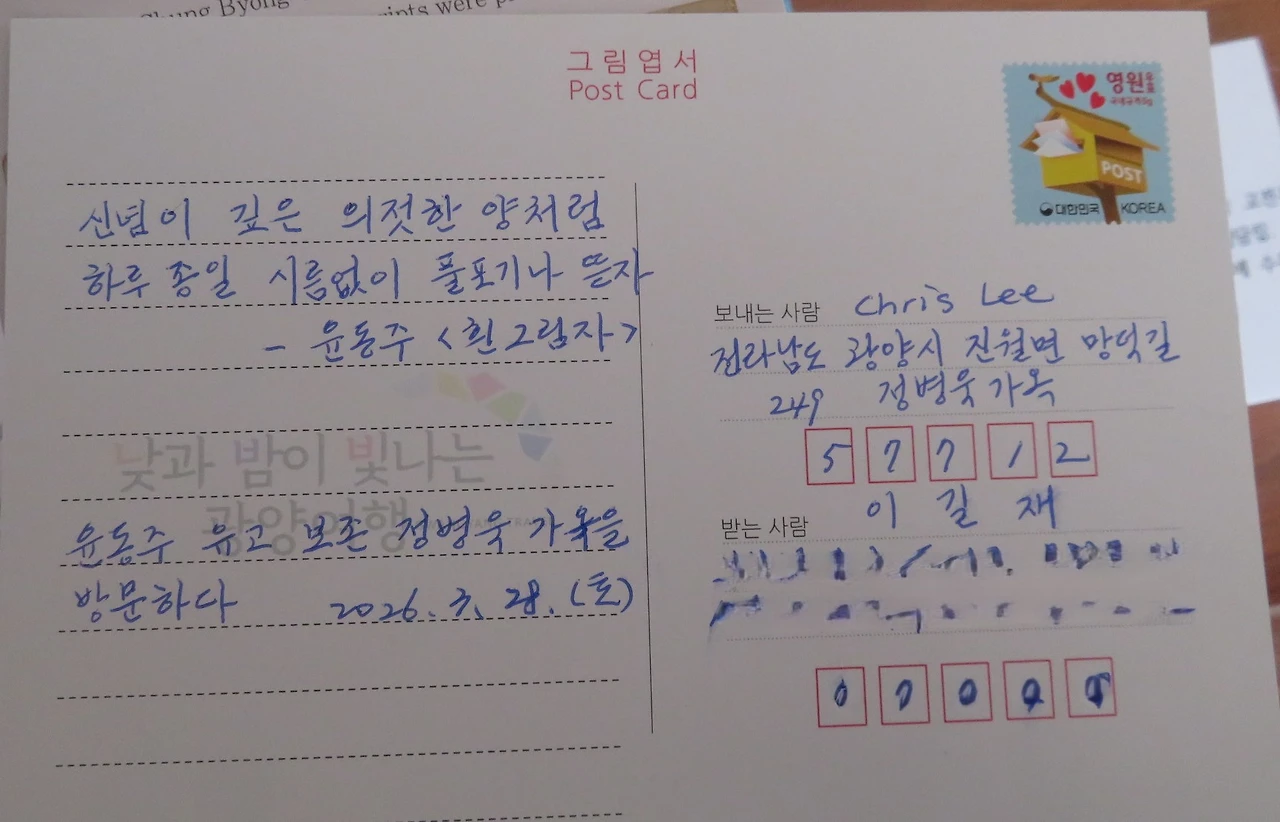 Chung Byong
ipts were p
그림엽서
Post Card
영원우표
국제규격50g
POST
대한민국 KOREA
신념이 깊은 의젓한 양처럼
하루 종일 시름없이 풀포기나 뜯자
- 윤동주 <흰 그림자>
낮과 밤이 빛나는
광양여행
윤동주 유고 보존 정병욱 가옥을
방문하다 2026. 3. 28. (토)
보내는 사람 Chris Lee
전라남도 광양시 진월면 망덕길
249 정병욱 가옥
5 7 7 1 2
이 길 재
받는 사람